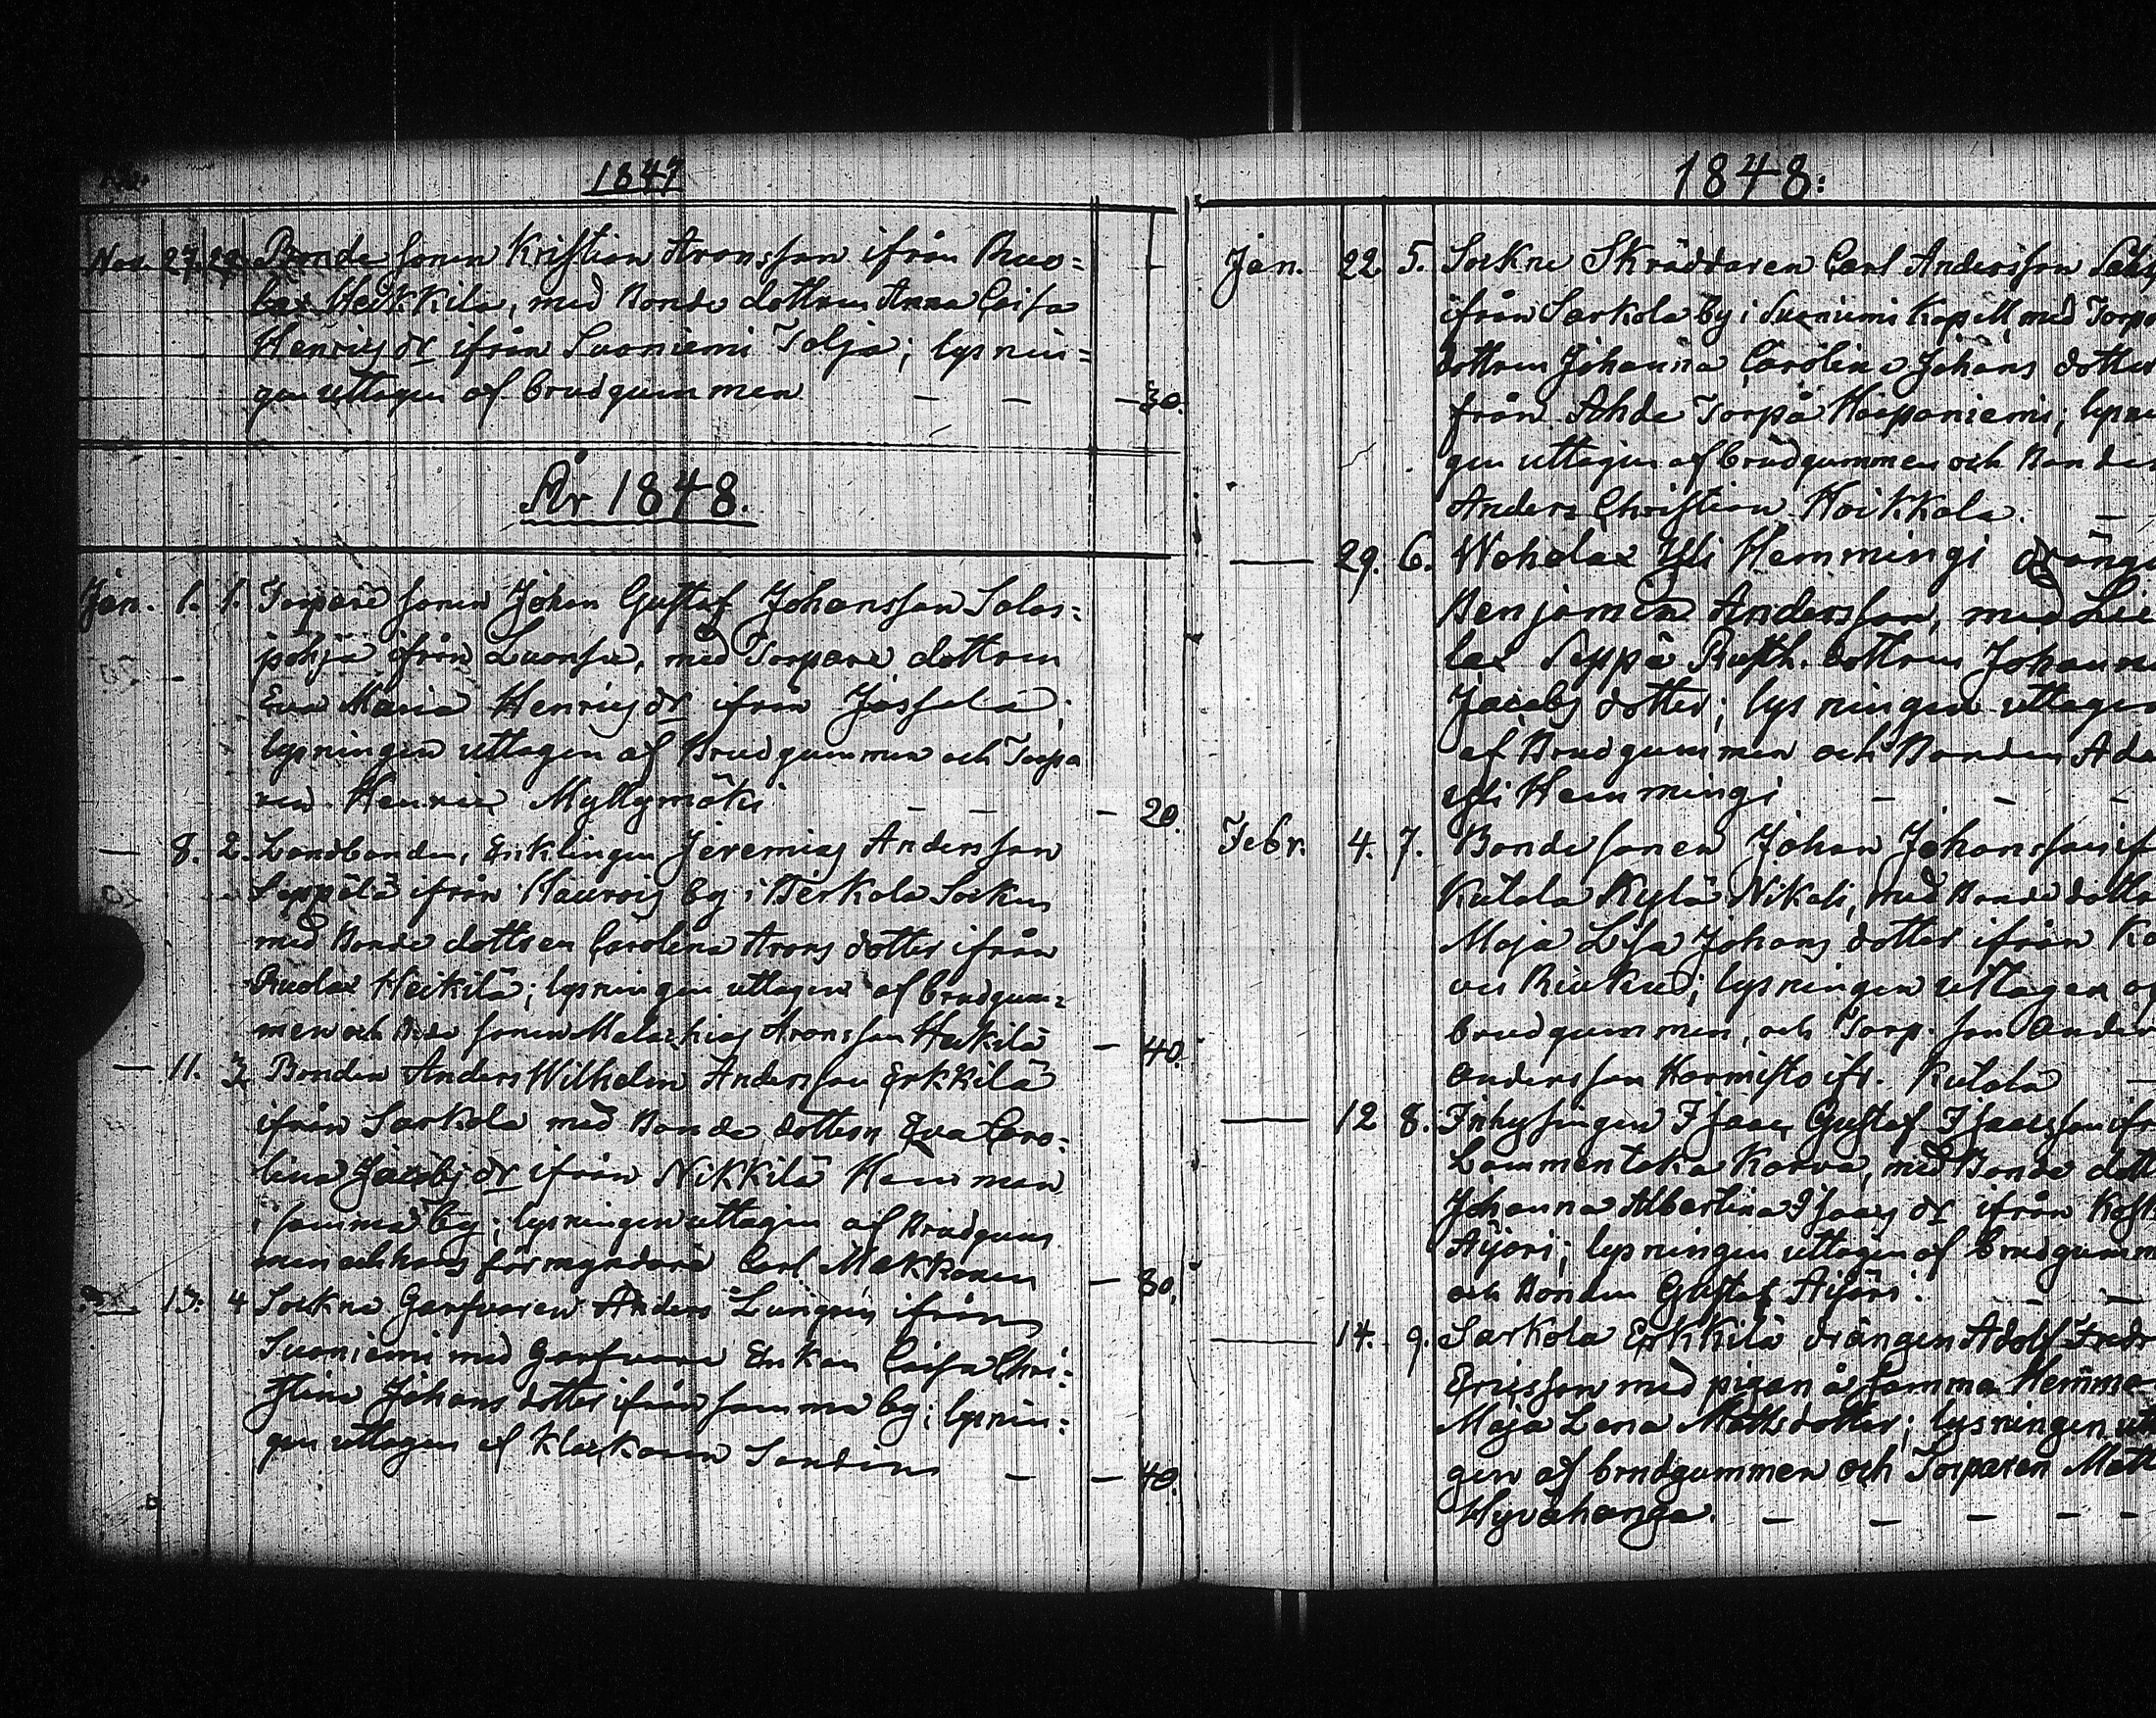 1847
Nov. 27. 29. Bonde sonen Kristian Aronsson ifrån Ruo=
lax Heikkila, med Bonde dottren Anna Caisa
Henricsdr ifrån Suoniemi Talja; lysnin=
gen uttagen af brudgummen — — — 30.
År 1848.
Jan. 1. 1. Torpare sonen Johan Gustaf Johansson Salos=
pohja ifrån Luonsia, med Torpare dottren
Eva Maria Henricsdr ifrån Jassala;
lysningen uttagen af Brudgummen och Torpa
ren Henric Myllymäki — — — 20.
— 8. 2. Landbonden, Enklingen Jeremias Andersson
Seppälä ifrån Haurois by i Tÿrkala Sockn
med Bonde dottren Carolina Arons dotter ifrån
Ruolax Heikilä; lysningen uttagen af brudgum=
men och Bde sonen Malachias Aronsson Heikilä — 40.
— 11. 3. Bonden Anders Wilhelm Andersson Erkkilä
ifrån Sarkola med Bonde dottren Eva Caro=
lina Jacobsdr ifrån Nikkilä Hemman
i samma by; lysningen uttagen af Brudgum
men och hans förmyndare Carl Makkonen — 80.
— 13. 4 Sockne Garfvaren Anders Lungrén ifrån
Suoniemi med Garfvare Enkan Caisa Chri=
stina Johans dotter ifrån samma by; lysnin=
gen uttagen af Klockaren Sandin — — 40.
1848:
Jan. 22. 5. Sockne Skräddaren Carl Andersson
ifrån Sarkola by i Suoniemi Kapell, med Torp
dottren Johanna Carolina Johans dotter
från Ahde Torpå Haapaniemi; lysn
gen uttagen af brudgummen och Bonden
Anders Christian Koikkala. —
— 29. 6. Wahalax Yli Hemmingi dräng
Benjamin Andersson, med
lax Seppä Rusth. dottren Johanna
Jacobs dotter; lysningen uttagen
af Brudgummen och Bonden Ada
Yli Hemmingi — — —
Febr. 4. 7. Bonde sonen Johan Johansson if
Kutala Kylä Nikali, med Bonde dottr
Maja Lisa Johans dotter ifrån Ko
vis Riukus; lysningen uttagen af
brudgummen, och Torp. son Anders
Andersson Harmisto ifr. Kutala —
— 12 8. Inhysingen Isaac Gustaf Isaacsson ifr
Lammentaka Karva, med Bonde dott
Johanna Albertina Isaacs dr ifrån Kosk
Äijäri; lysningen uttagen af brudgumm
och Bonden Gustaf Äijäri. — —
— 14. 9. Sarkola Erkkilä drängen Adolf Fredr
Ericsson med pigan å samma Hemman
Maja Lena Mattsdotter; lysningen utt
gen af brudgummen och Torparen Matt
Hyvähanga. — — — — —